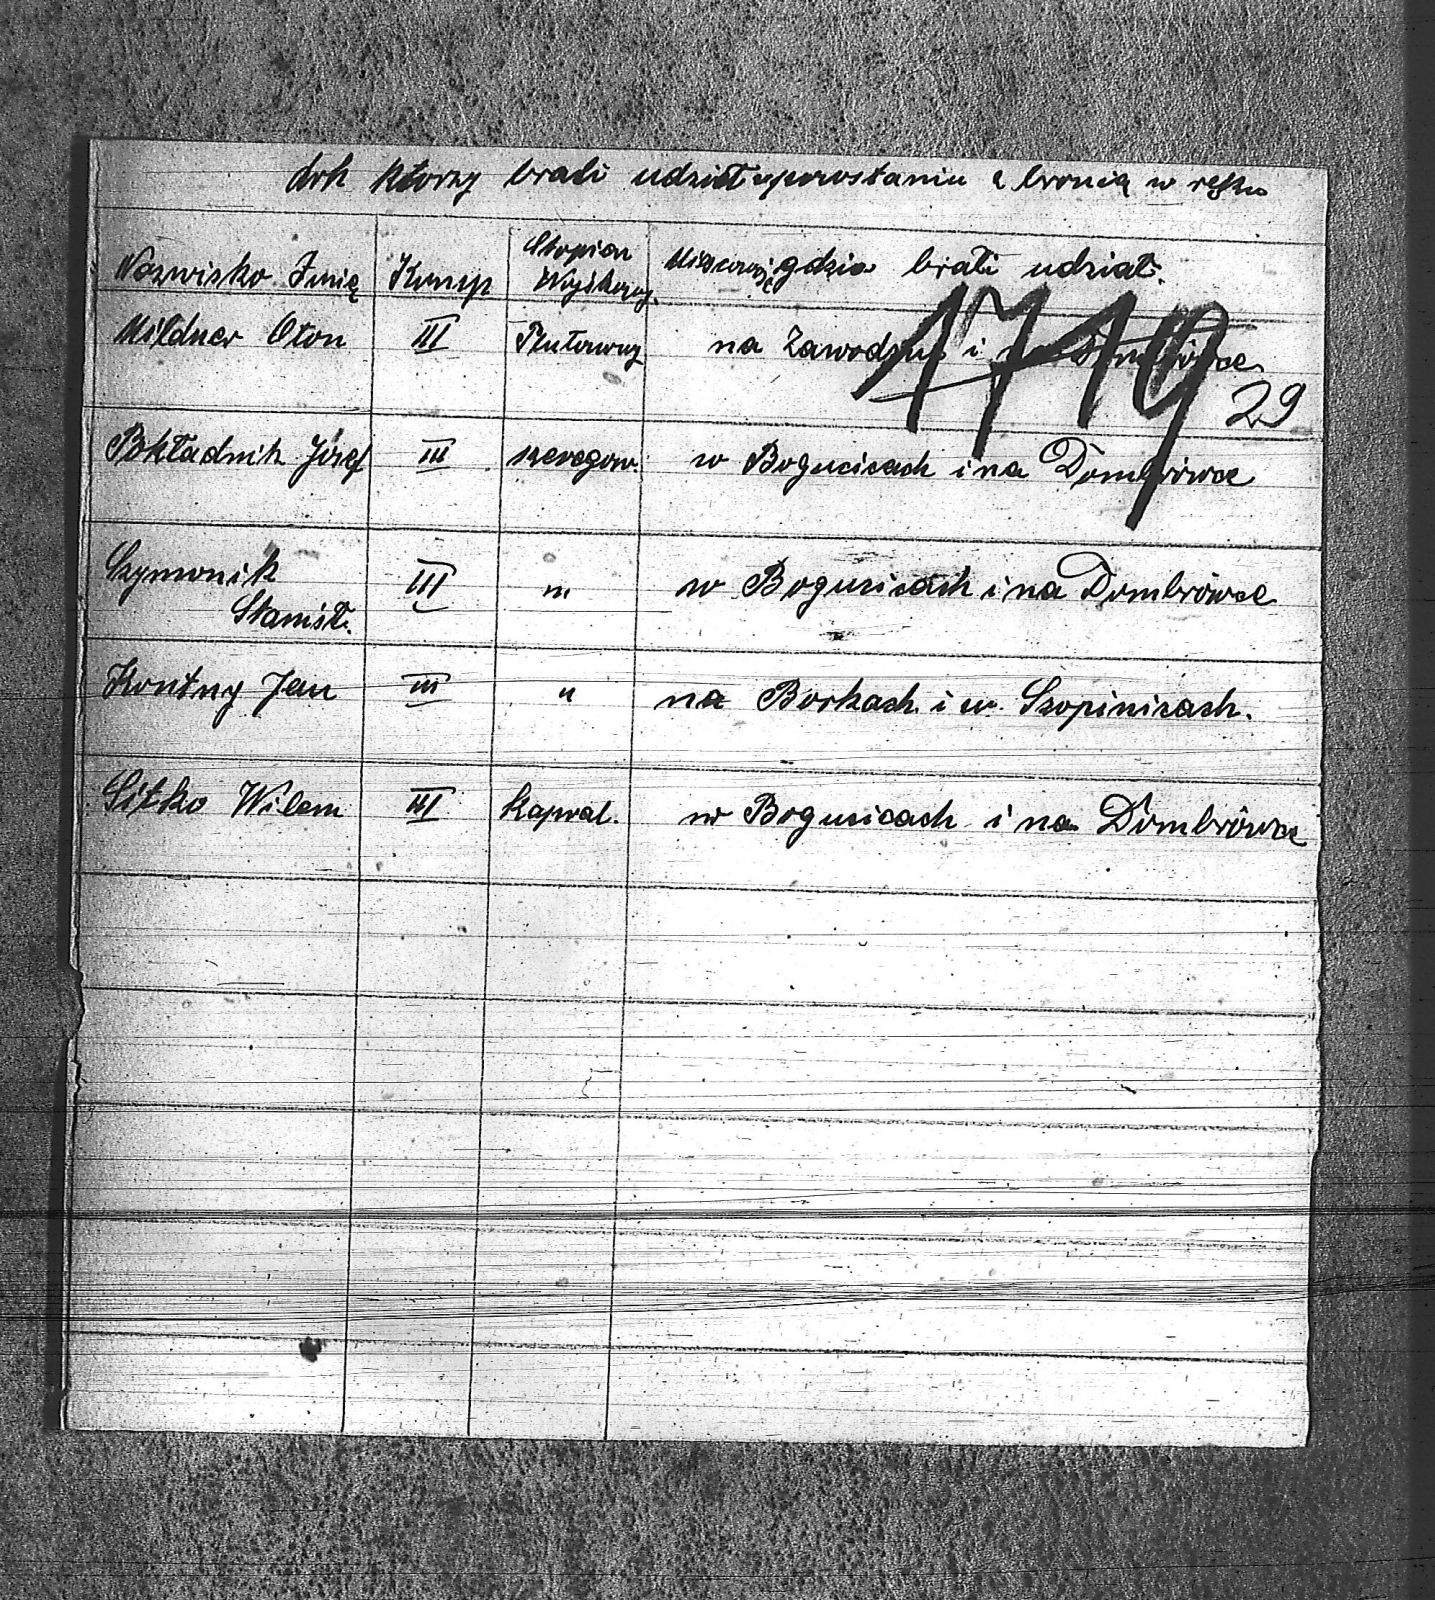 drh którzy brali udział w powostaniu z bronią w ręku
Nazwisko Imię Komp Stopian Wojskowy Miescowość gdzie brali udział.
Mildner Oton III Plutonowy na Zawodziu i na Dombrówce
1719
29
Pokładnik Józef III szeregow. w Bogucicach i na Dombrówce
Szymonik III " w Bogucicach i na Dombrówce
Stanisł.
Kontny Jan III " na Borkach i w. Szopinicach.
Sitko Wilem III kapral. w Bogucicach i na Dombrówce